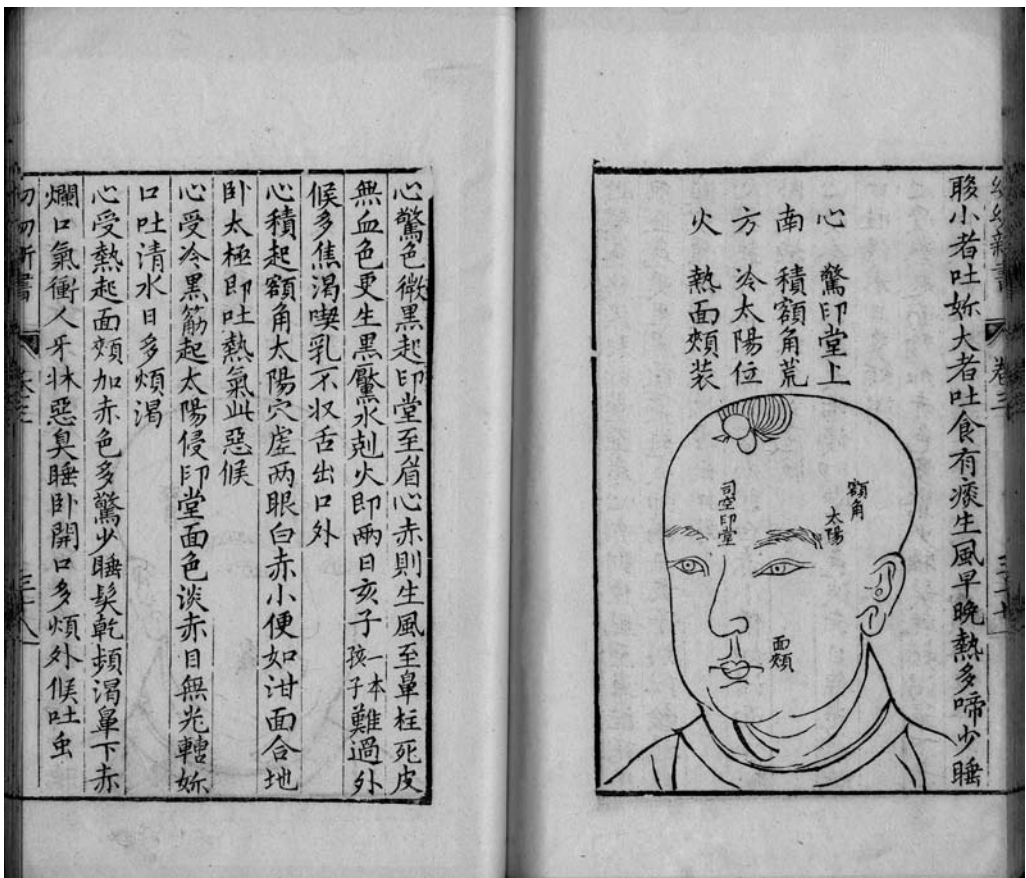 幼幼新書 卷三 三十七
聧小者吐妳大者吐食有痰生風早晚熱多啼少睡
心 驚印堂上
南 積額角荒
方 冷太陽位
火 熱面頰装
額角
太陽
司空印堂
面頰
心驚色微黑起印堂至眉心赤則生風至鼻柱死皮
無血色更生黑黶水剋火即兩日亥子一本孩子難過外
候多焦渴喫乳不收舌出口外
心積起額角太陽穴虛两眼白赤小便如泔面合地
卧太極即吐熱氣此惡候
心受冷黑筋起太陽侵印堂面色淡赤目無光轄妳
口吐清水日多煩渴
心受熱起面頰加赤色多驚少睡髮乾頻渴鼻下赤
爛口氣衝人牙牀惡臭睡卧開口多煩外候吐虫
幼幼新書 卷三 三十八